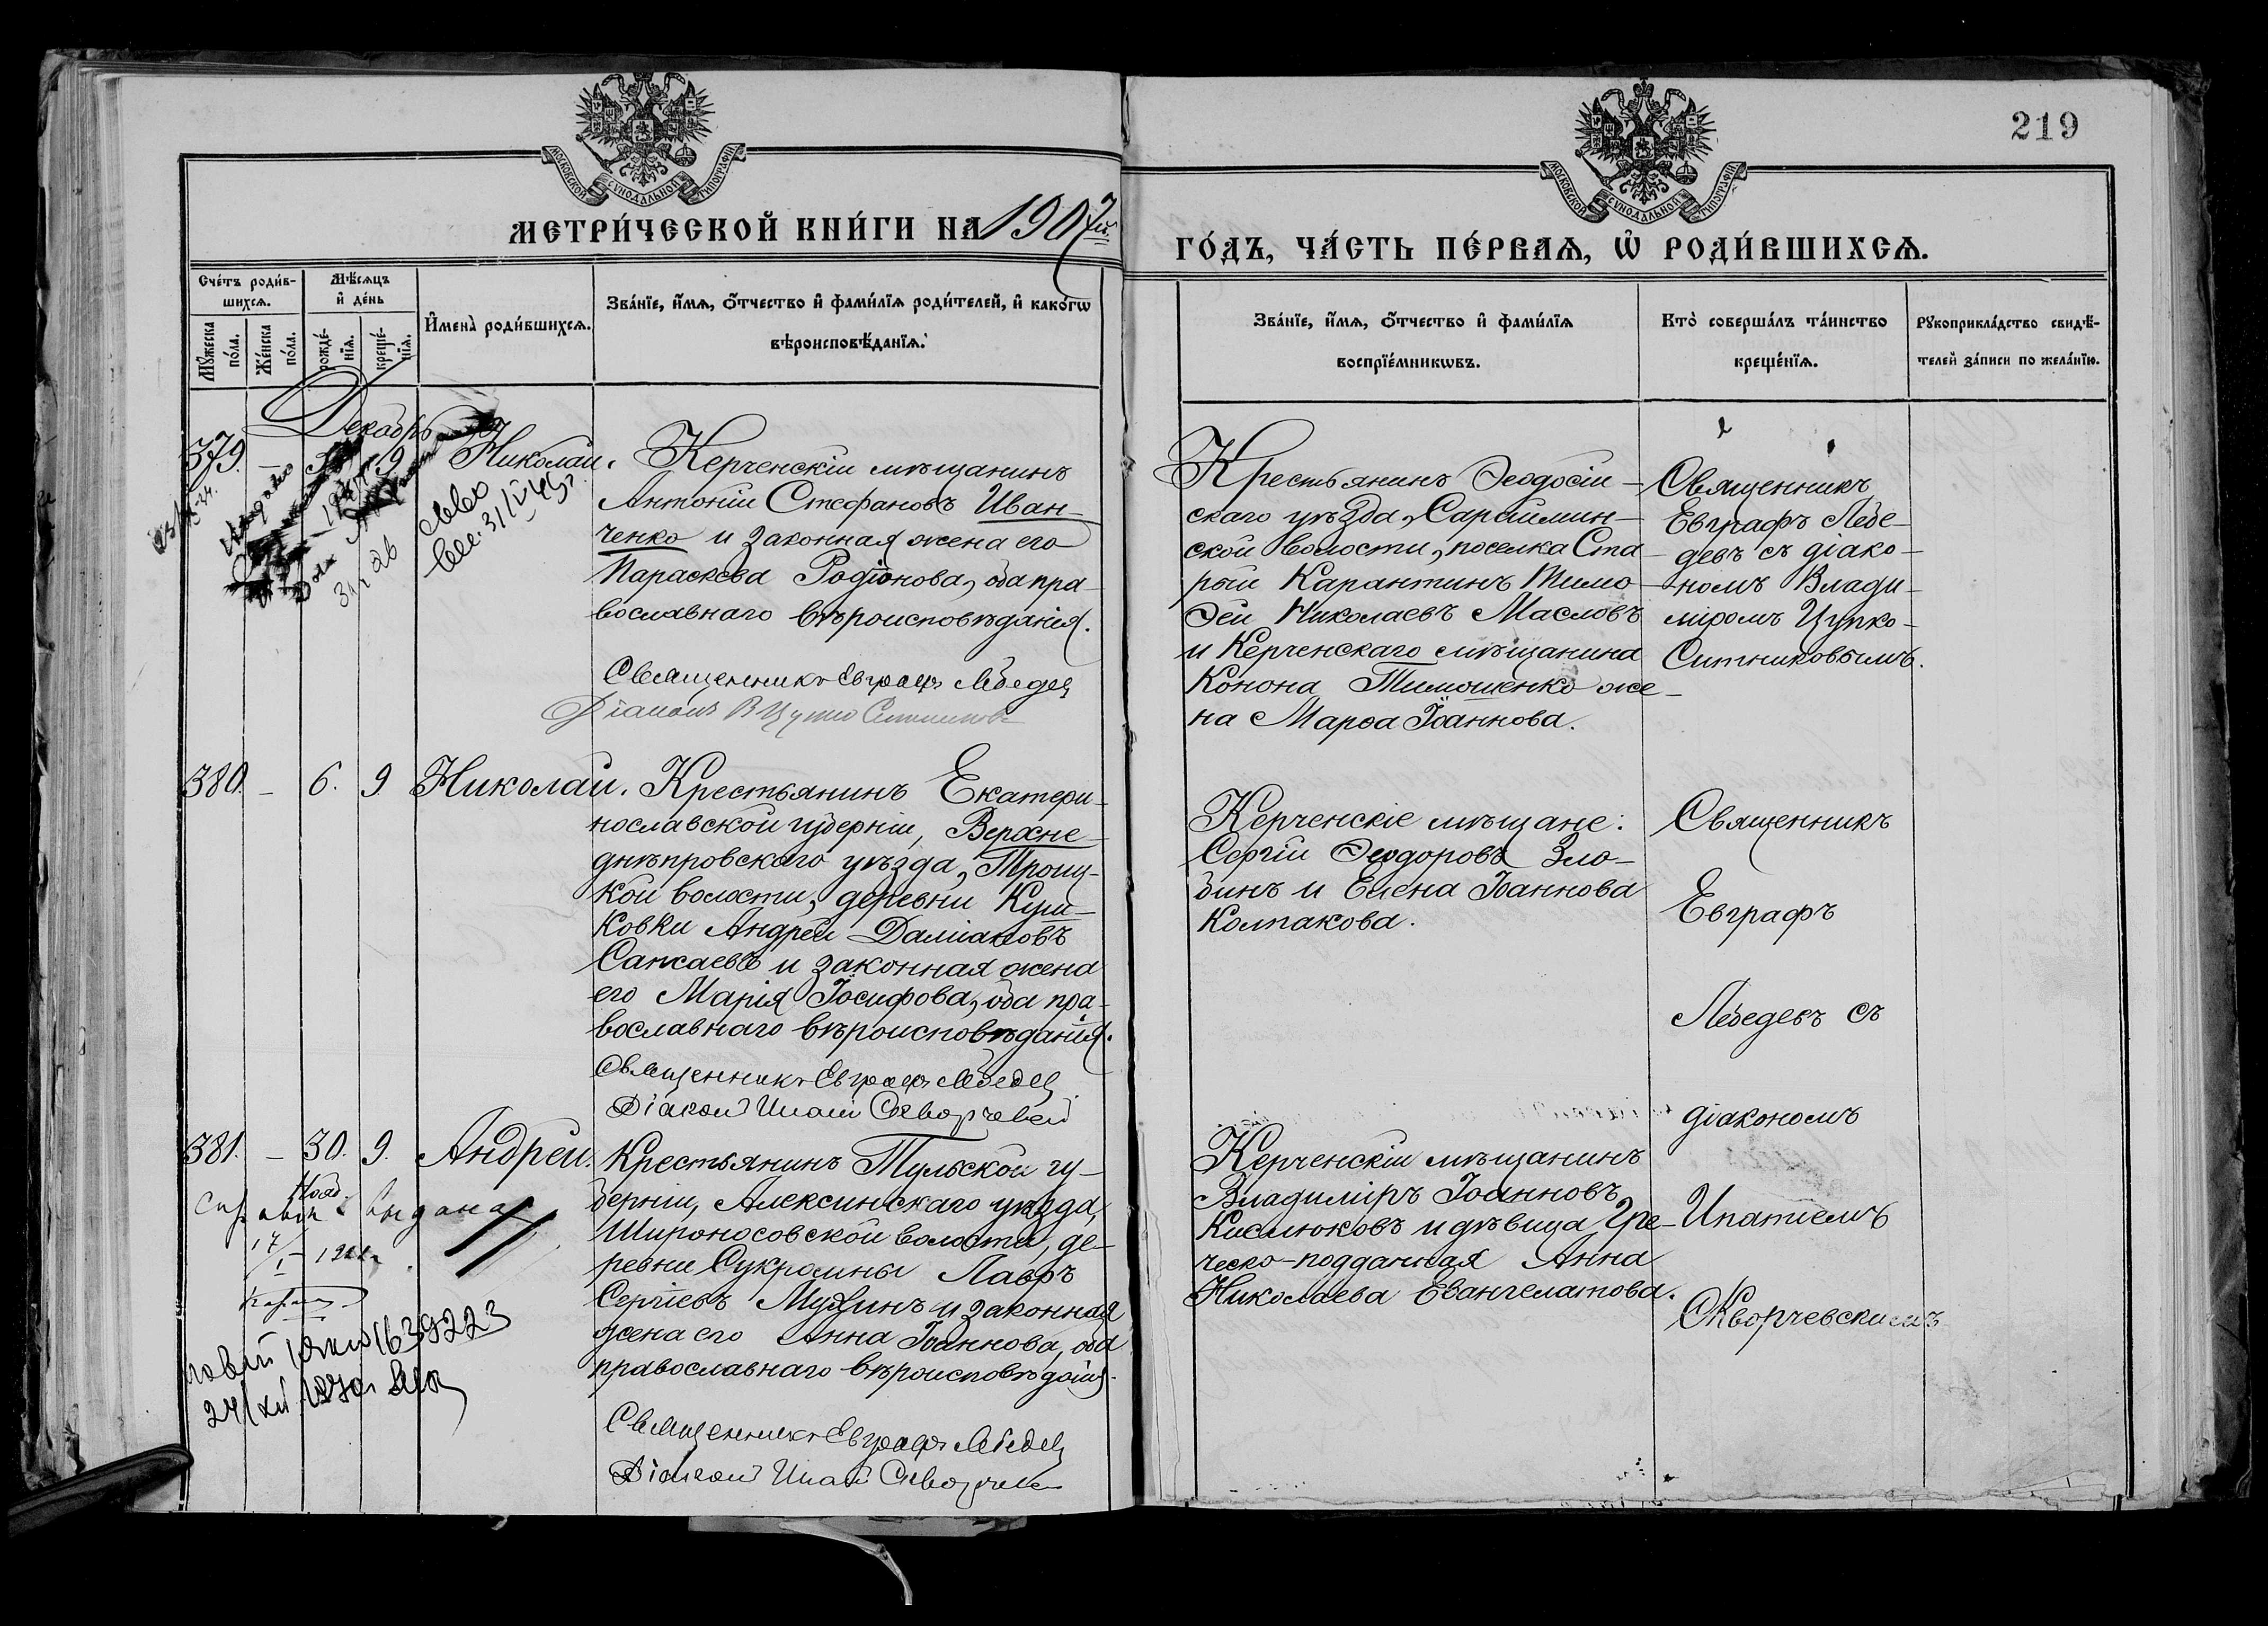 219
МОСКОВСКОЙ СѴНОДАЛЬНОЙ ТИПОГРАФІИ
МОСКОВСКОЙ СѴНОДАЛЬНОЙ ТИПОГРАФІИ
МЕТРИ́ЧЕСКОЙ КНИ́ГИ НА 1907
ГО́ДЪ, ЧА́СТЬ ПЕ́РВАѦ, Ѡ҆ РОДИ́ВШИХСѦ.
Сче́тъ роди́в-
шихсѧ.
Мѣ́сѧцъ
и҆ де́нь
Мꙋ́жеска
по́ла.
Же́нска
по́ла.
рожде́-
нїѧ.
креще́-
нїѧ.
И҆мена̀ роди́вшихсѧ.
Зва́нїе, и҆́мѧ, ѻ҆́тчество и҆ фами́лїѧ роди́телей, и҆ како́гѡ
вѣроисповѣ́данїѧ.
Зва́нїе, и҆́мѧ, ѻ҆́тчество и҆ фами́лїѧ
воспрїе́мникѡвъ.
Кто̀ соверша́лъ та́инство
креще́нїѧ.
Рꙋкоприкла́дство свидѣ́-
телей за́писи по жела́нїю.
Декабрь
379. — 9 Николай.
Керченскій мѣщанинъ
Антоній Стефановъ Иван-
ченко и законная жена его
Параскева Родіонова, оба пра-
вославнаго вѣроисповѣданія.
Священникъ Евграфъ Лебедев
Діаконъ В Цупко Ситников
Крестьянинъ Ѳеодосій-
скаго уѣзда, Сараймин-
ской волости, поселка Ста-
рый Карантинъ Тимо-
ѳей Николаевъ Масловъ
и Керченскаго мѣщанина
Конона Тимошенко же-
на Марѳа Іоаннова.
Священникъ
Евграфъ Лебе-
девъ съ діако-
номъ Влади-
міромъ Цупко-
Ситниковымъ.
380. — 6. 9. Николай.
Крестьянинъ Екатери-
нославской губерніи, Верхне-
днѣпровскаго уѣзда, Троиц-
кой волости, деревни Кули-
ковки Андрей Даміановъ
и законная жена
его Марія Іосифова, оба пра-
вославнаго вѣроисповѣданія.
Священникъ Евграфъ Лебедев
Діакон Ипатій Скворчевск
Керченскіе мѣщане:
Сергій Ѳеодоровъ Зло-
бинъ и Елена Іоаннова
Колпакова.
Священникъ
Евграфъ
Лебедевъ съ
діакономъ
Ипатіемъ
Скворчевскимъ
381. — 30. 9. Андрей.
Нояб.
Справка выдана
17/I
новый 1639223
24/XII 1970г
Крестьянинъ Тульской гу-
берніи, Алексинскаго уѣзда,
Широносовской волости, де-
ревни Сукромны Лавръ
Сергіевъ и законная
жена его Анна Іоаннова, оба
православнаго вѣроисповѣданія.
Священникъ Евграфъ Лебедев
Діакон Ипатій Скворчев
Керченскій мѣщанинъ
Владиміръ Іоанновъ
Кислюковъ и дѣвица Гре-
ческо-подданная Анна
Николаева Евангелатова.